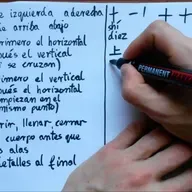 izquierda a derecha
arriba abajo
primero el horizontal
pués el vertical
se cruzan)
primero el vertical
ués el horizontal
empiezan en el
mismo punto)
llenar, cerrar
cuerpo antes que
s alas
detalles al final
shí
diez
十
PERMANENT